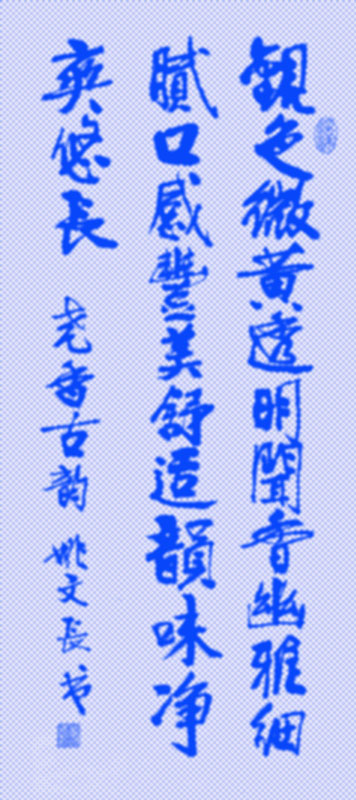 觀色微黃透明聞香幽雅細
膩口感豐美舒适韻味净
爽悠長
老香古韵 姚文長书